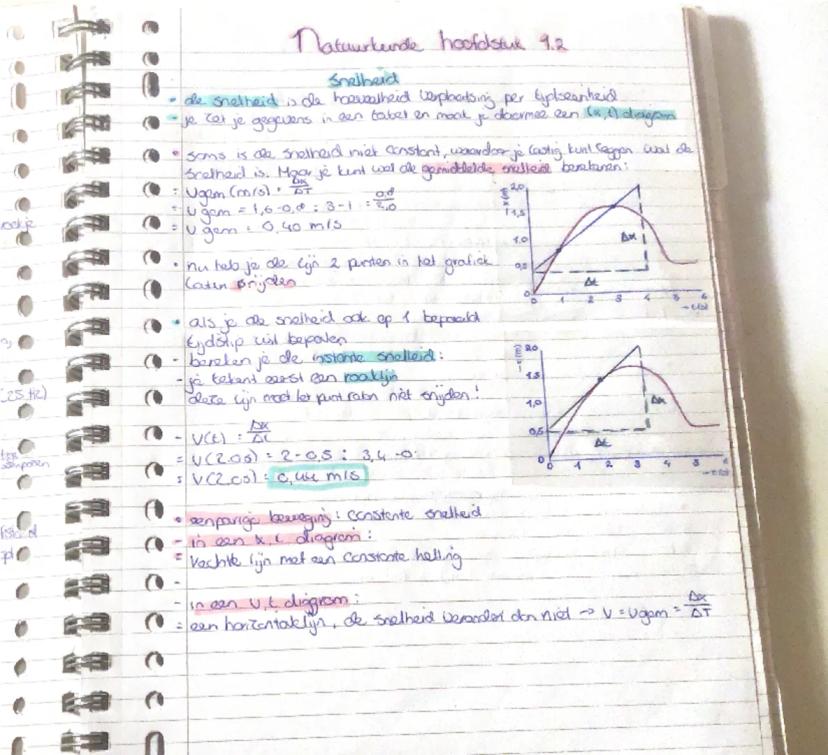 Natuurkunde hoofdstuk 9.2
Snelheid
• de snelheid is de hoeveelheid verplaatsing per tijdseenheid
- je zet je gegevens in een tabel en maak je daarmee een (x,t) diagram
• soms is de snelheid niet constant, waardoor je lastig kunt zeggen wat de
snelheid is. Maar je kunt wel de gemiddelde snelheid berekenen:
= Vgem (m/s) = Δx/ΔT
= Vgem = 1,6-0,8 : 3-1 = 0,8/2,0
= Vgem = 0,40 m/s
• nu heb je de lijn 2 punten in het grafiek
laten snijden
2,0
1,5
1,0
0,5
0
1 2 3 4 5 6
Δx
Δt
→ t(s)
• als je de snelheid ook op 1 bepaald
tijdstip wil bepalen
- bereken je de instante snelheid:
- je tekent eerst een raaklijn
deze lijn moet het punt raken niet snijden!
- V(t) = Δx/Δt
= V(2,0s) = 2-0,5 : 3,4-0
= V(2,0s) = 0,44 m/s
2,0
1,5
1,0
0,5
0
0 1 2 3 4 5 6
Δx
Δt
→ t(s)
• eenparige beweging: constante snelheid
- in een x,t diagram:
= rechte lijn met een constante helling
-
- in een v,t diagram:
= een horizontale lijn, de snelheid verandert dan niet → V = Vgem = Δx/ΔT